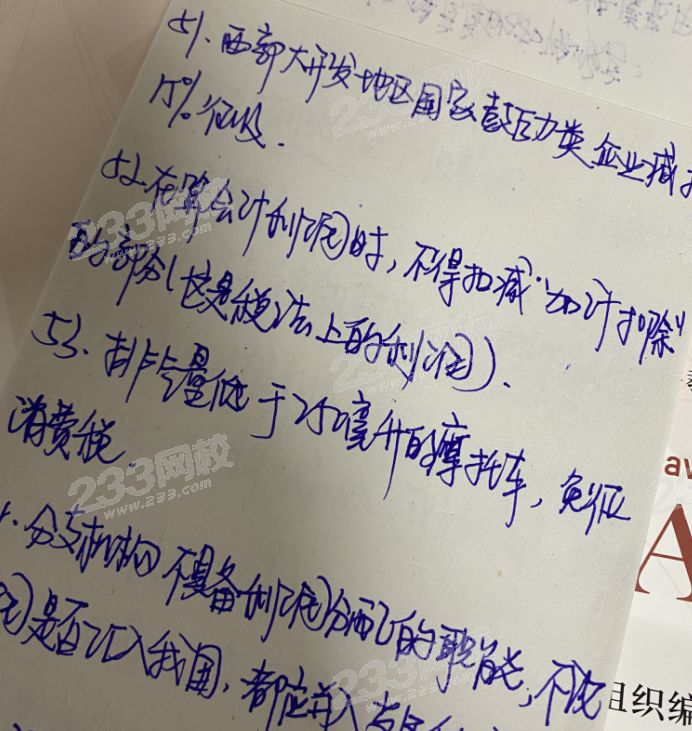 51. 西部大开发地区国家鼓励类企业减按
15%征收.
52.在算会计利润时,不得扣减"加计扣除"
的部分(这是税法上的利润).
53.排气量低于250毫升的摩托车,免征
消费税.
分支机构不具备利润分配的职能,不论
润是否汇入我国,都应并入
233网校
www.233.com
aw
A
组织编